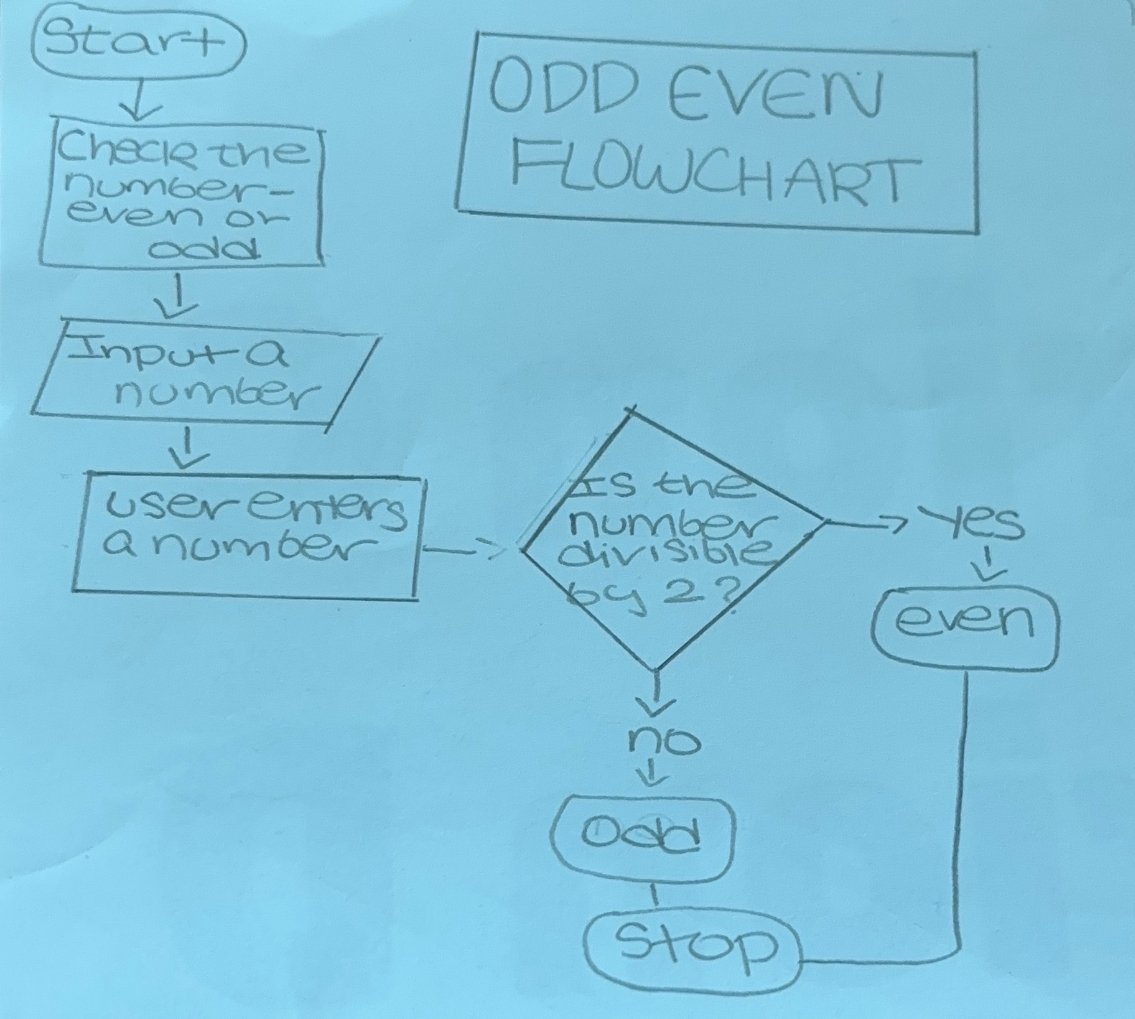 Start
ODD EVEN
FLOWCHART
Check the
number-
even or
odd
Input a
number
user enters
a number
Is the
number
divisible
by 2?
yes
even
no
odd
Stop